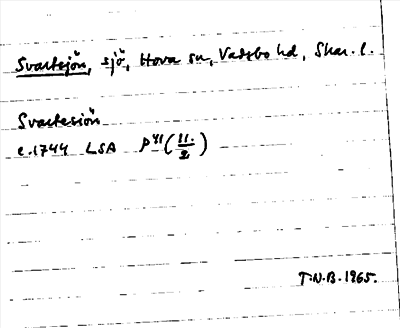 Svartejön, sjö, Hova sn, Vadsbo hd, Skar. l.
Svartesiön
c.1744 LSA P41(11./2)
T.N.B. 1965.